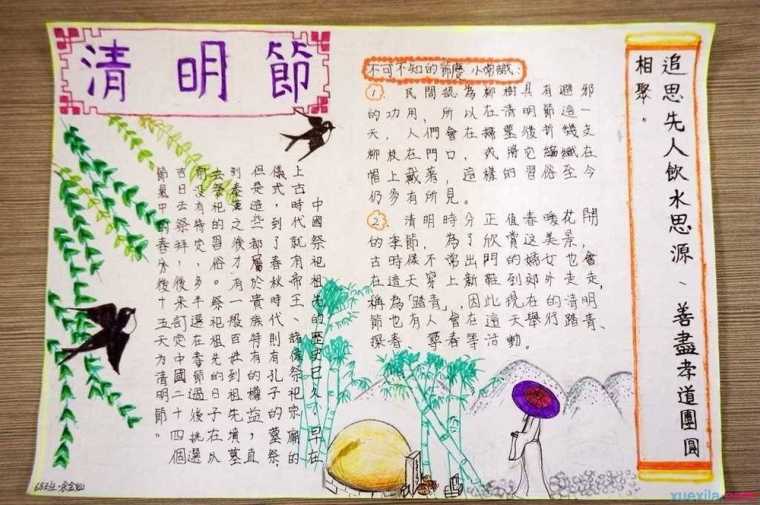 清明節
中國祭祀祖先的歷史已久，早在
上古時代就有帝王、諸侯祭祀宗廟的
儀式，到了春秋時代則有孔子的墓祭，
但是這些都屬於貴族特有的權益，直
到秦漢之後才有一般百姓到祖先墳墓
去祭祀的習俗。祭祀祖先的日子在從
前沒有特定，多半選在春節過後挑選
吉日去祭拜，後來訂定中國二十四個
節氣中的春分後十五天為清明節。
不可不知的節慶小常識：
1. 民間認為柳樹具有避邪
的功用，所以在清明節這一
天，人們會在掃墓後折幾支
柳枝在門口，或將它編織在
帽上戴著，這樣的習俗至今
仍多有所見。
2. 清明時分正值春暖花開
的季節，為了欣賞這美景，
古時候不常出門的婦女也會
在這天穿上新鞋到郊外走走，
稱為「踏青」，因此現在的清明
節也有人會在這天舉行踏青、
探春、尋春等活動。
追思先人飲水思源、善盡孝道團圓
相聚。
xuexila.com